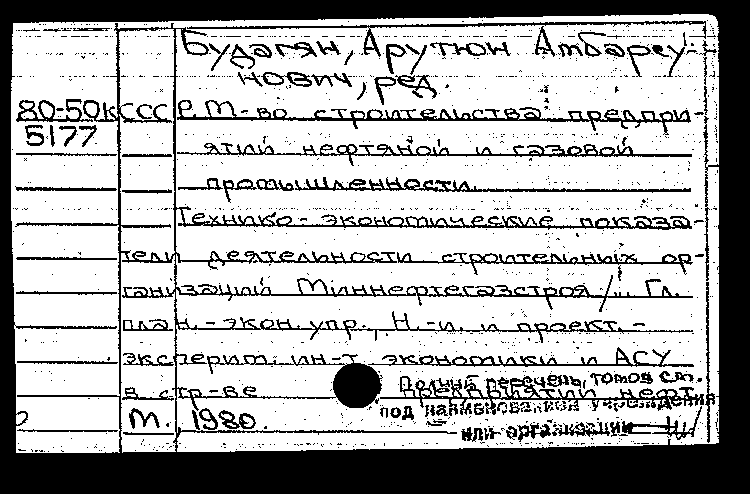 Будагян, Арутюн Амбарсу-
нович, ред.
80-50к СССР. М-во строительства предпри-
5177
ятий нефтяной и газовой
промышленности.
Технико-экономические показа-
тели деятельности строительных ор-
ганизаций Миннефтегазстроя /... Гл.
план.-экон. упр., Н.-и. и проект.-
эксперим. ин-т экономики и АСУ
в стр-ве предприятий нефт.
Полный перечень томов см.
под наименованием учреждения
М., 1980.
или организации